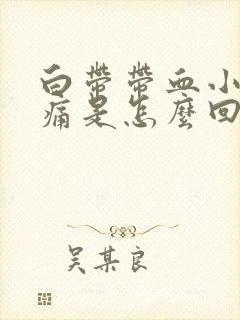 白帶帶血小
痛是怎麼回
吴某良